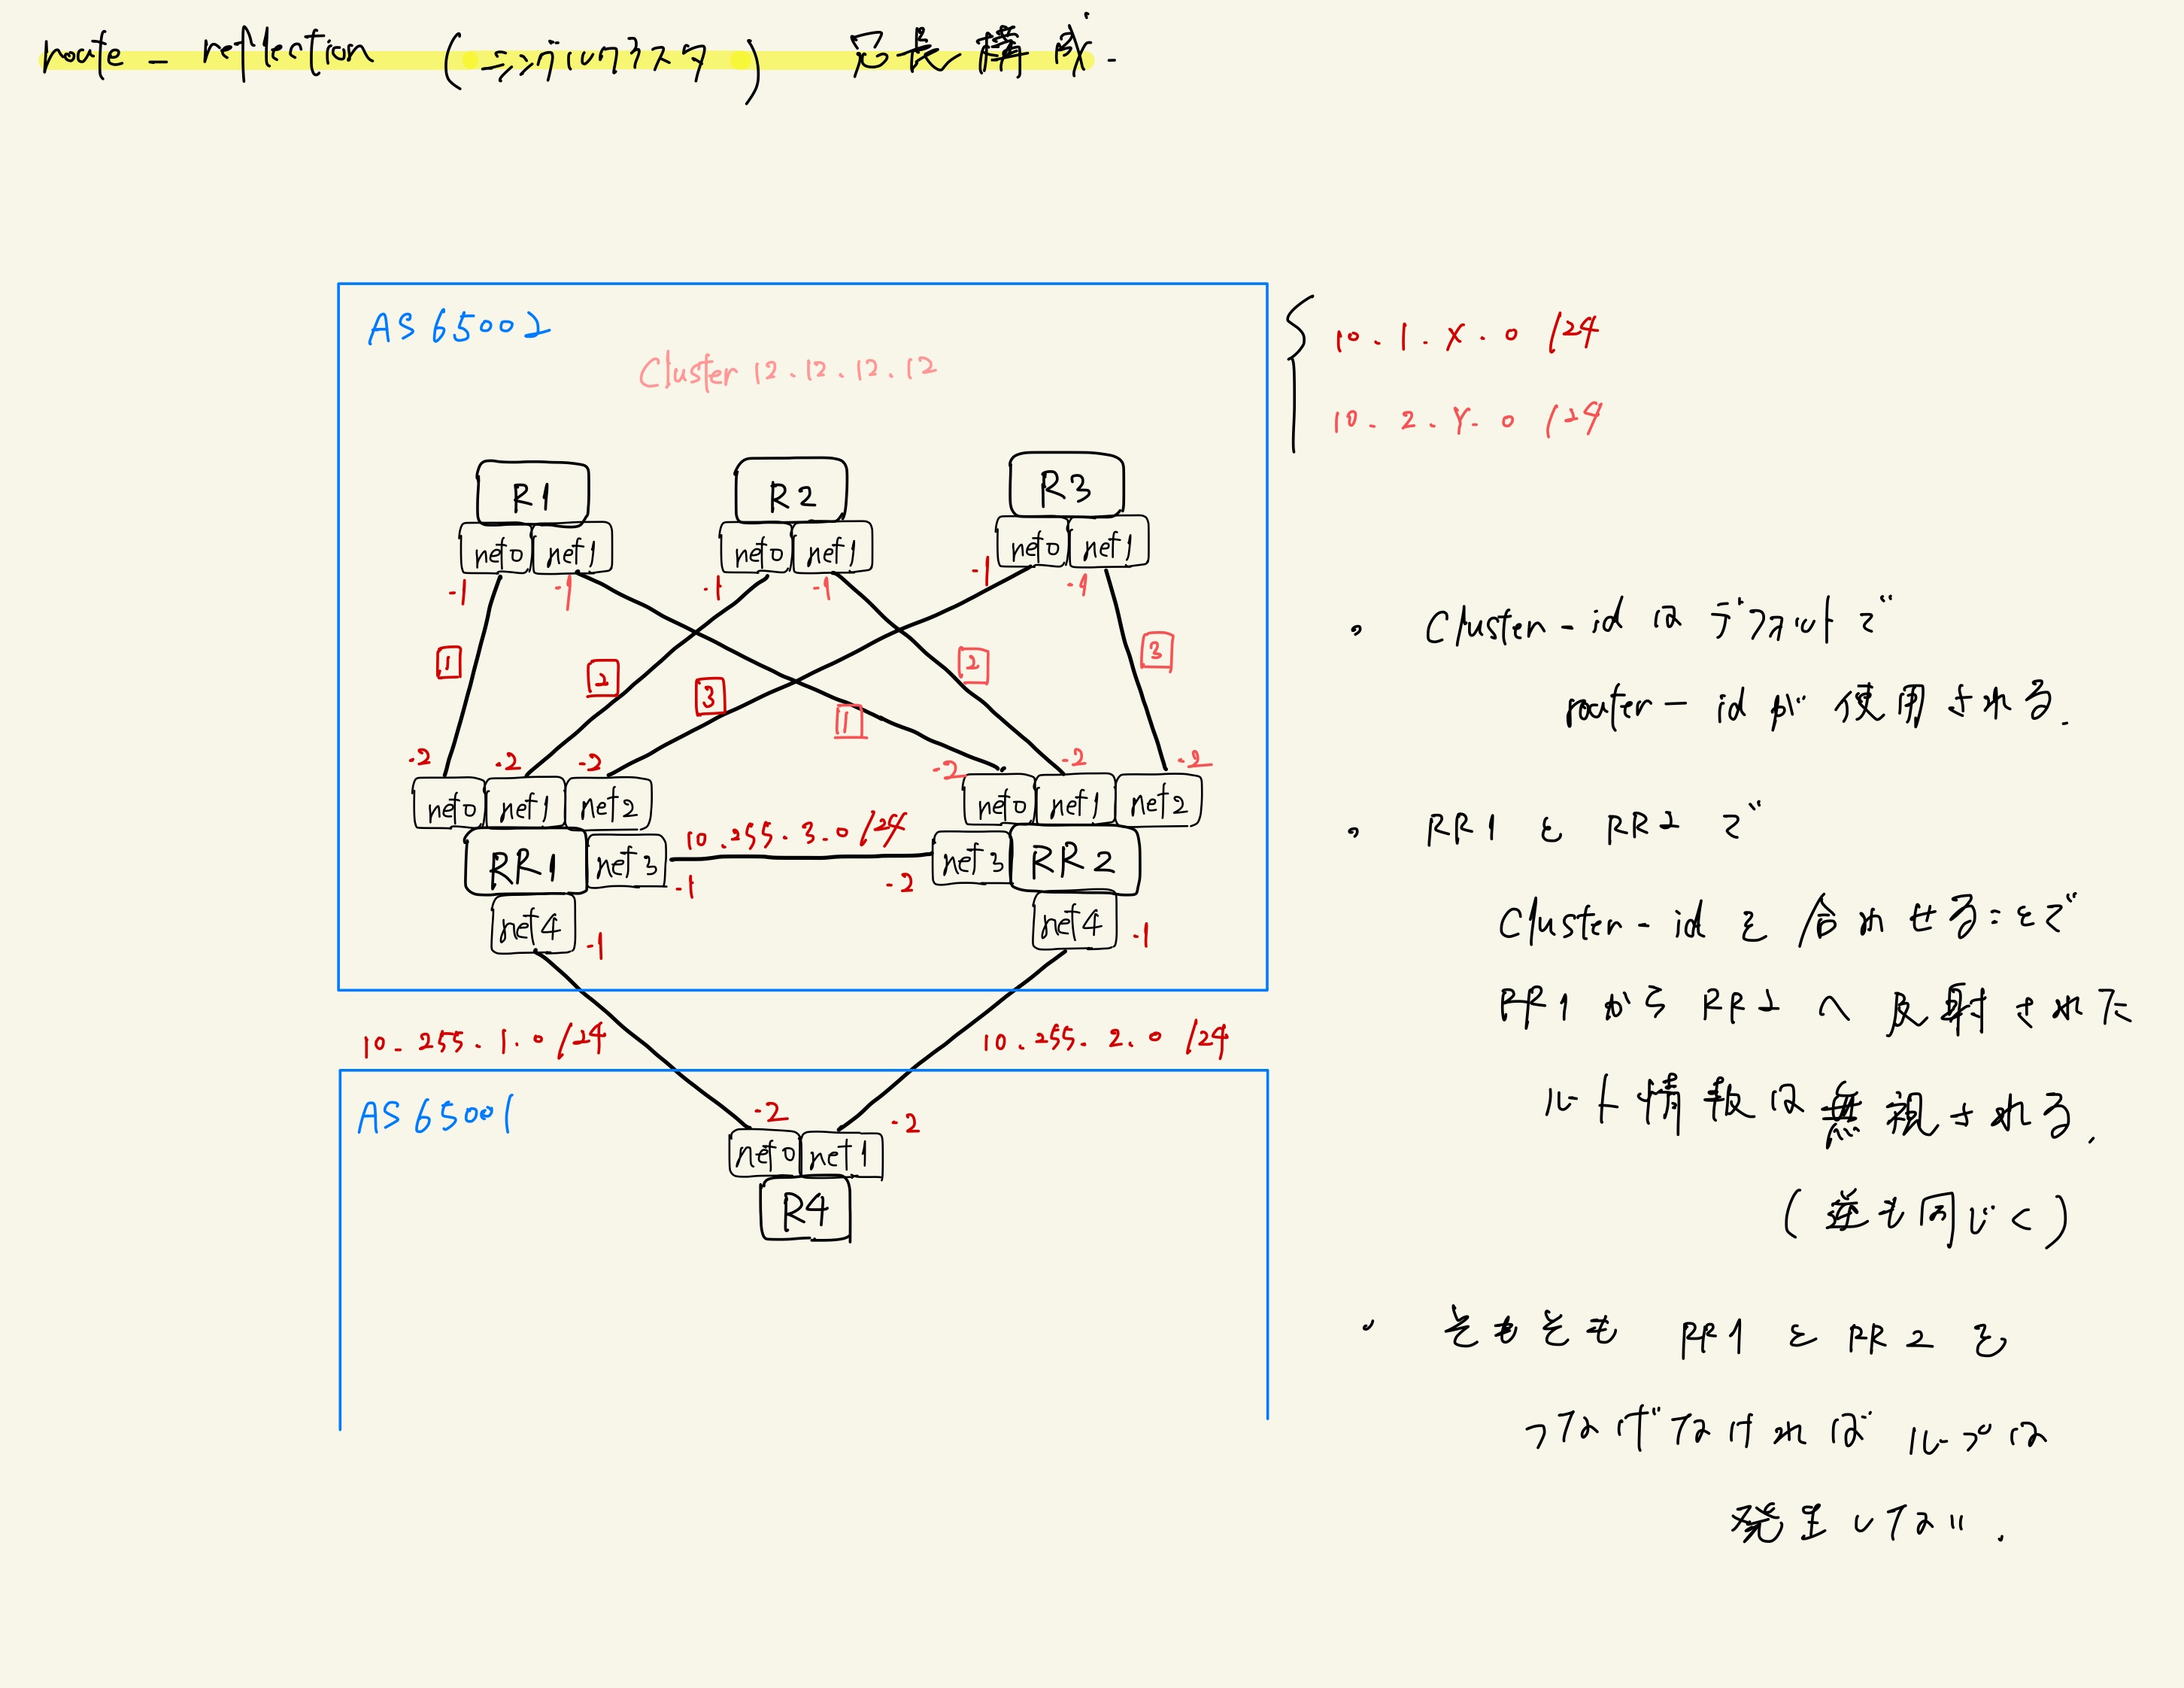 route - reflection (シングルクラスタ) 冗長構成.
AS 65002
Cluster 12.12.12.12
10.1.X.0 /24
10.2.Y.0 /24
R1
R2
R3
net0 net1
net0 net1
net0 net1
-1 -1
-1 -1
-1 -1
1
2
3
1
2
3
-2 -2 -2
-2 -2 -2
net0 net1 net2
net0 net1 net2
RR1 net3
10.255.3.0/24
-1 -2
net3 RR2
net4 -1
net4 -1
10.255.1.0/24
10.255.2.0/24
AS 65001
-2 -2
net0 net1
R4
・ Cluster-id は デフォルトで
router-id が 使用される.
・ RR1 と RR2 で
Cluster-id を 合わせることで
RR1 から RR2 へ 反射された
ルート情報は無視される.
(逆も同じく)
・ そもそも RR1 と RR2 を
つなげなければ ループは
発生しない.